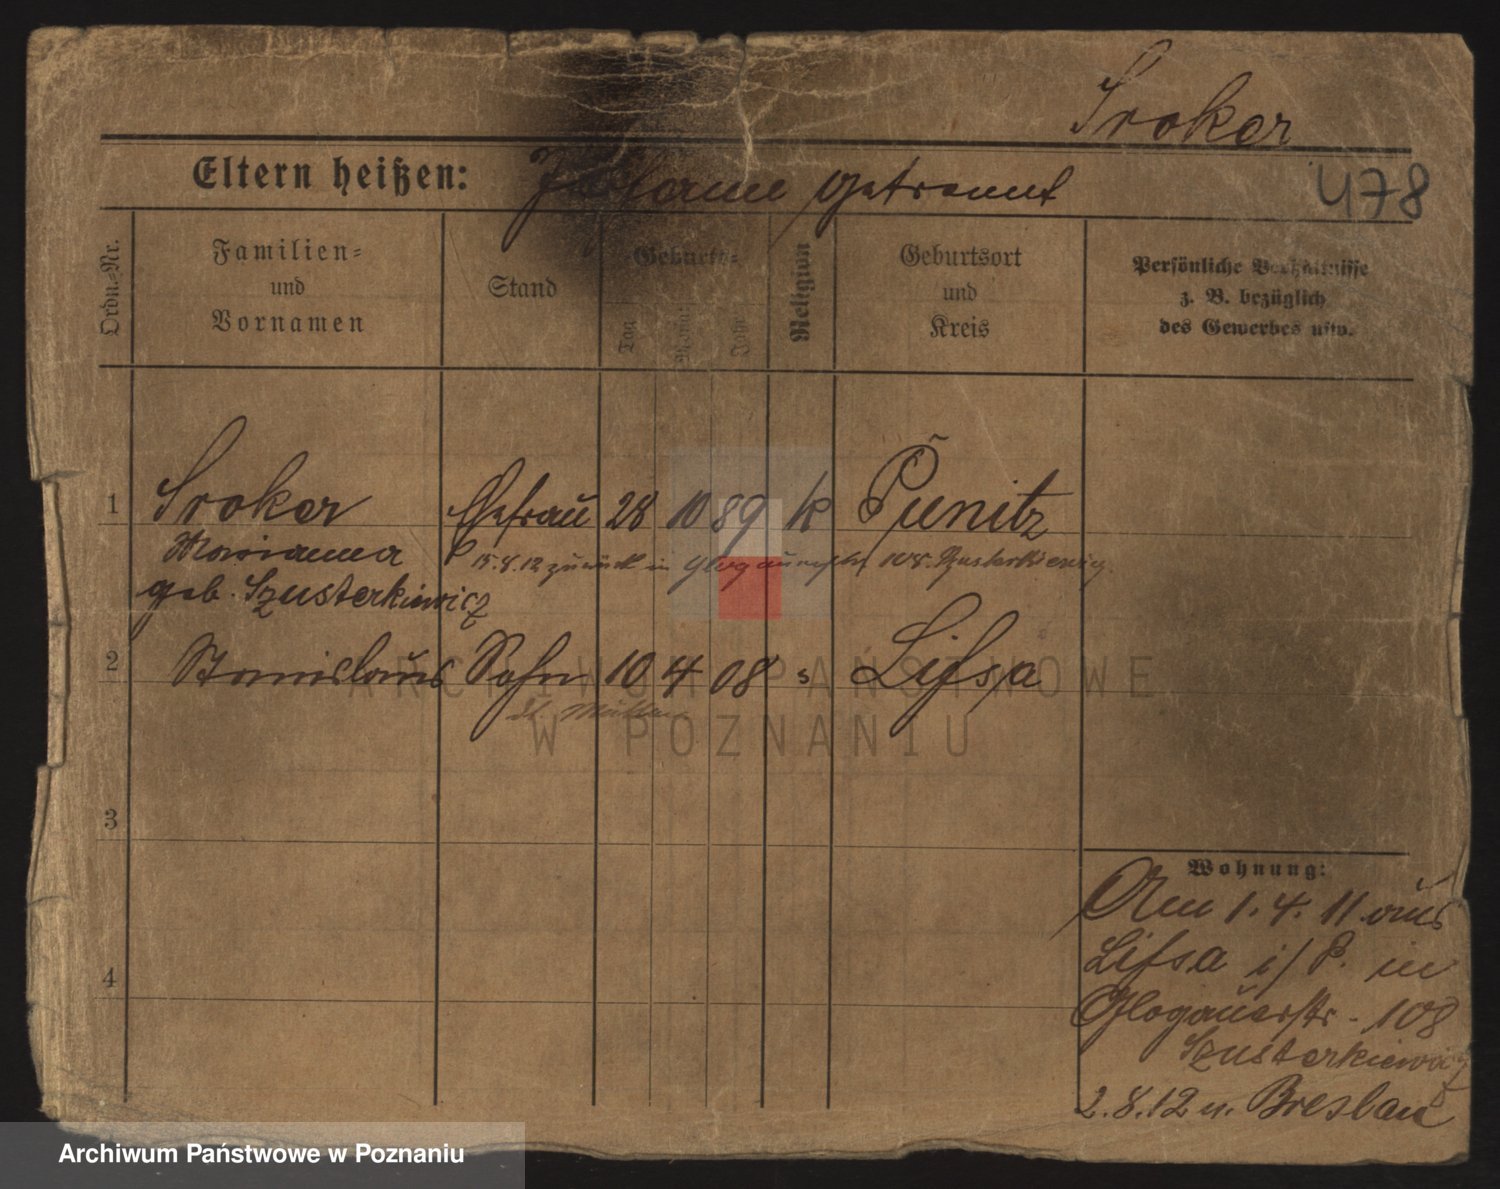 Sroker
Eltern heißen: getrennt
478
Ordn.-Nr.
Familien-
und
Vornamen
Stand
Geburts-
Tag
Monat
Jahr
Religion
Geburtsort
und
Kreis
Persönliche Verhältnisse
z. B. bezüglich
des Gewerbes usw.
1 Sroker Ehefrau 28 10 89 k Punitz
Marianna 15.8.12 zurück in Glogauerstr 108. Szusterkiewicz
geb. Szusterkiewicz
2 Stanislaus Sohn 10 4 08 s Lissa
3
4
Wohnung:
Am 1.4.11 aus
Lissa i/P. in
Glogauerstr. 108
Szusterkiewicz
2.8.12 n. Breslau
ARCHIWUM PAŃSTWOWE
W POZNANIU
Archiwum Państwowe w Poznaniu